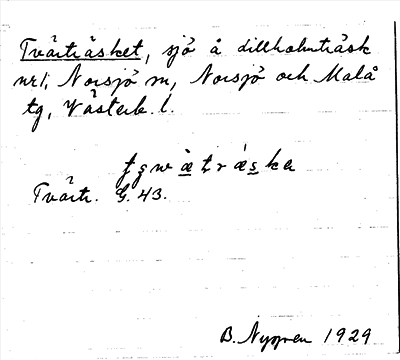 Tvärträsket, sjö å Lillholmträsk
nr 1, Norsjö sn, Norsjö och Malå
tg, Västerb. l.
Tvärtr. G. 43.
B. Nygren 1929